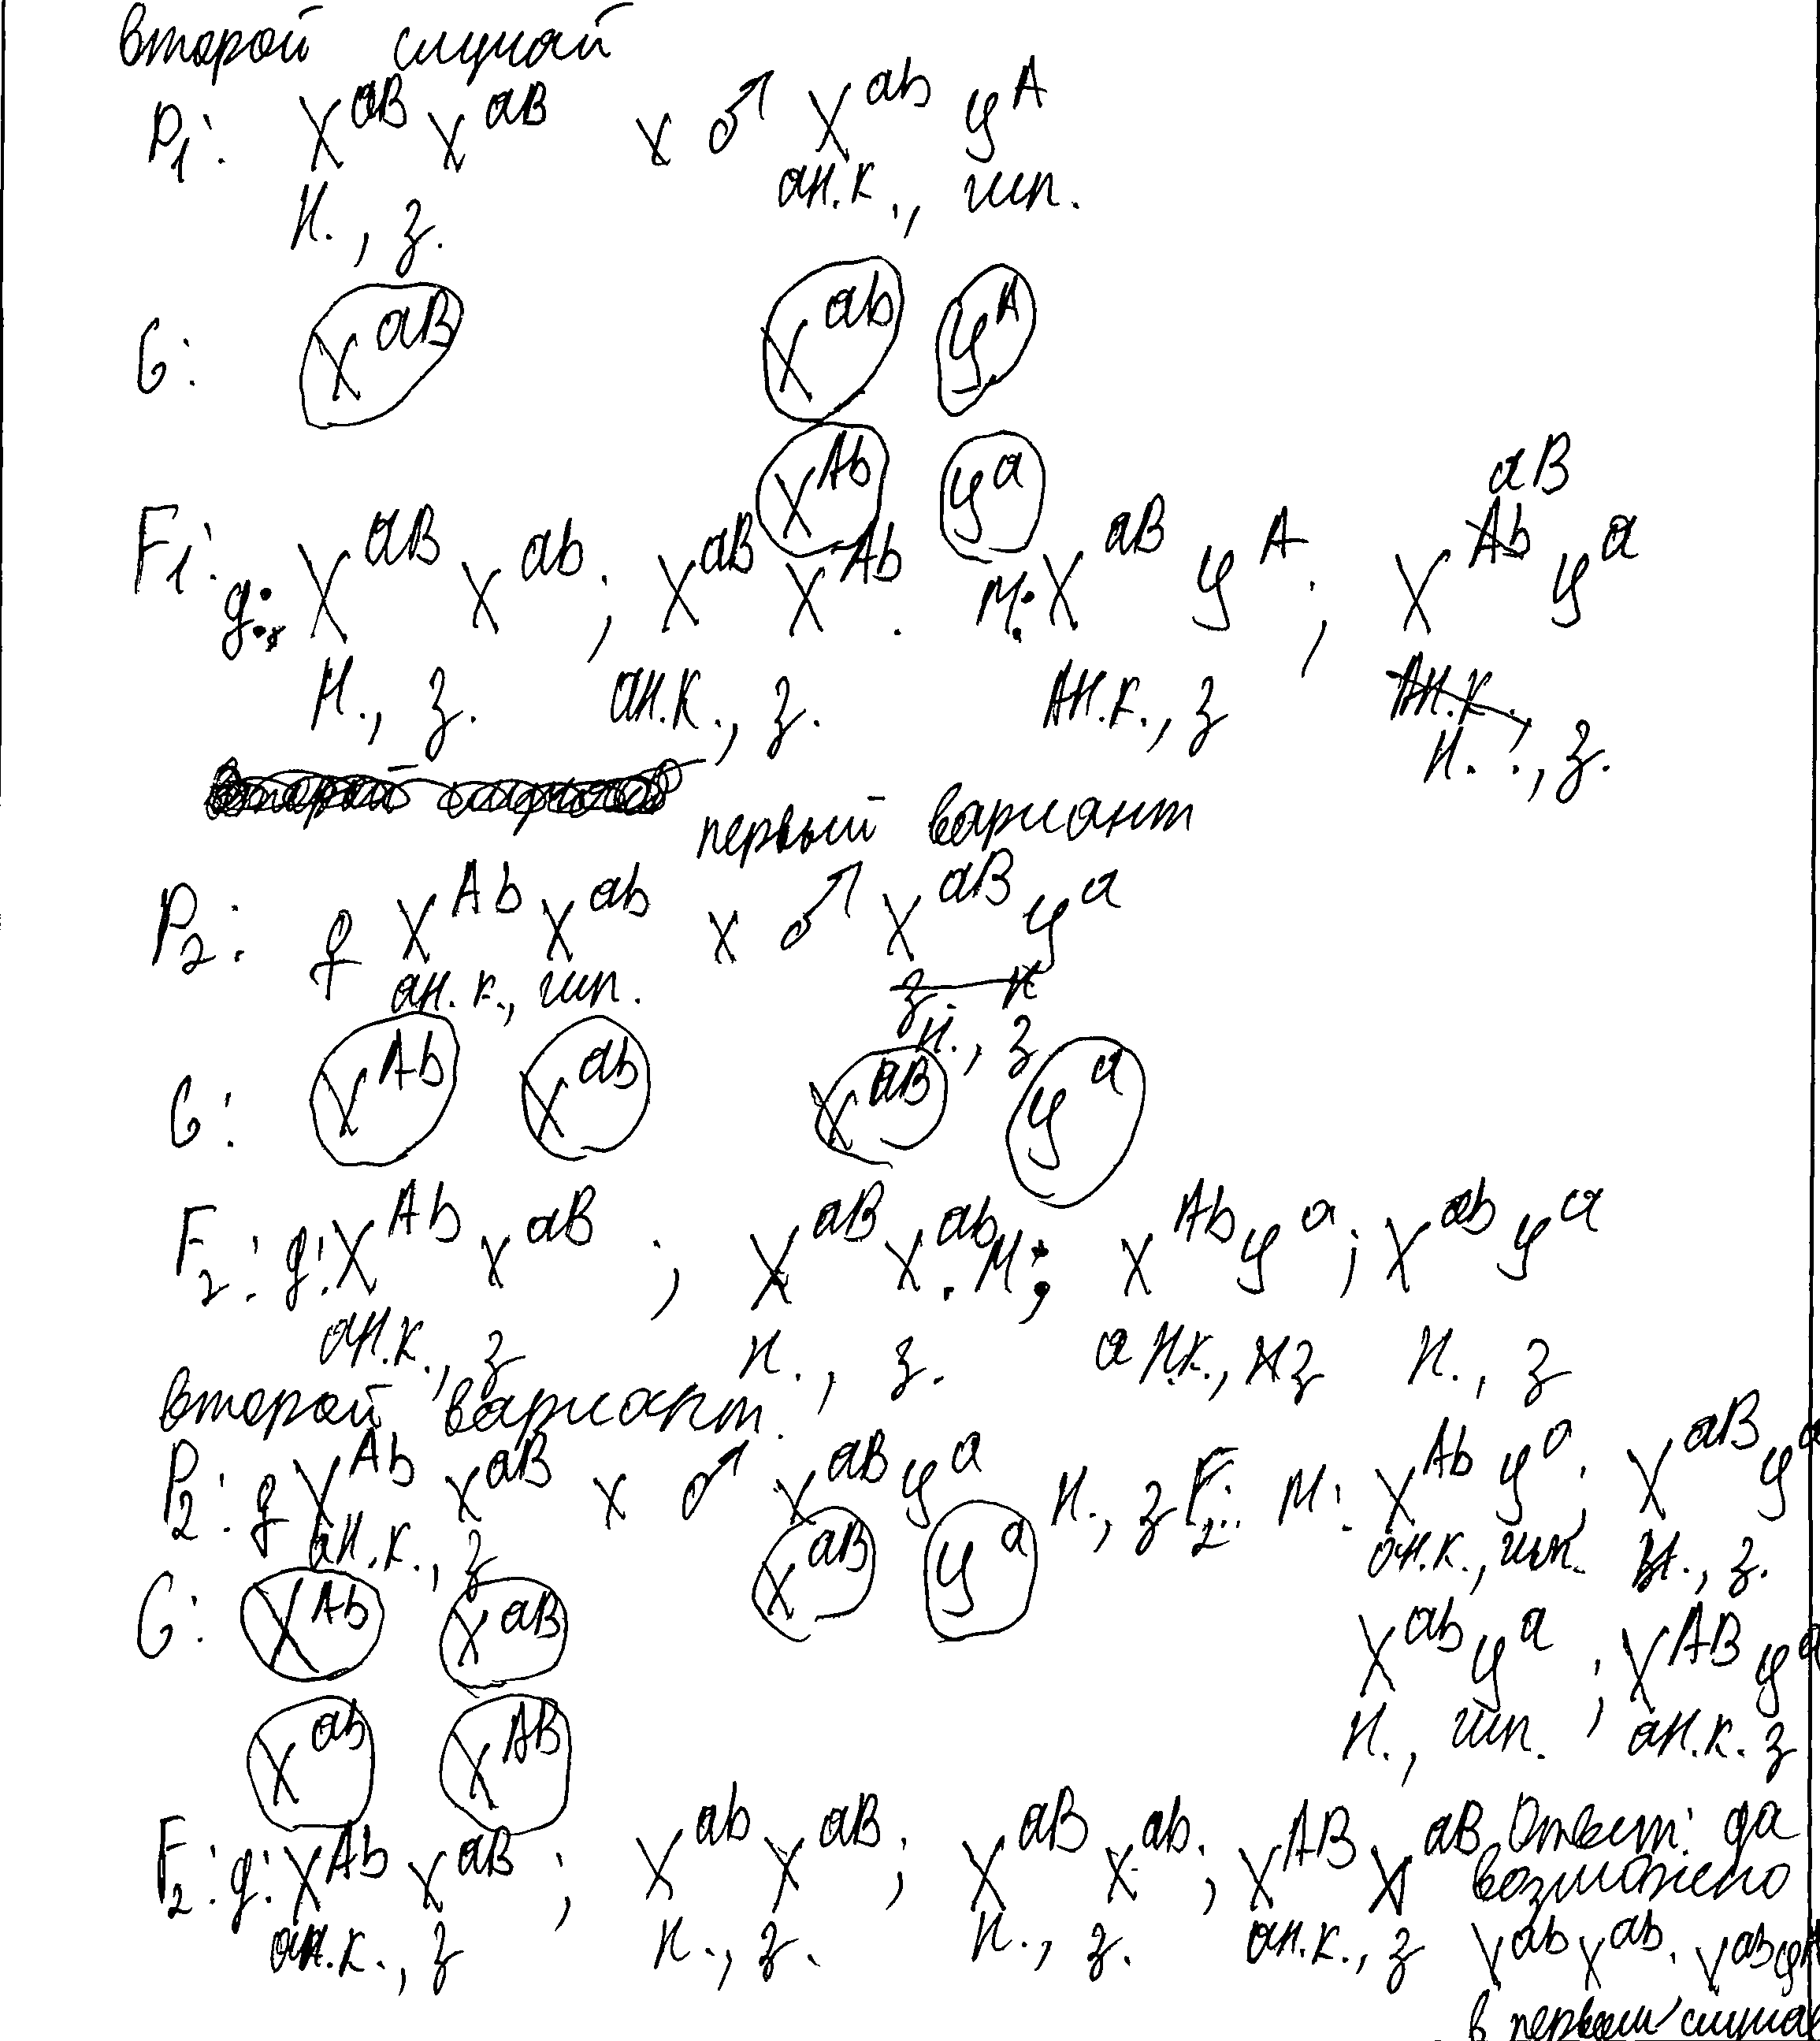 второй случай
P₁: X^aB X^aB x ♂ X^ab y^A
н., з. ан.к., шп.
G: X^aB X^ab y^A
X^Ab y^a
F₁: g: X^aB X^ab; X^aB X^Ab. м: X^aB y^A; X^aB y^a
н., з. ан.к., з. ан.к., з н., з.
первый вариант
P₂: ♀ X^Ab X^ab x ♂ X^aB y^a
ан.к., шп. н., з
G: X^Ab X^ab X^aB y^a
F₂: g: X^Ab X^aB; X^aB X^ab. м: X^Ab y^a; X^ab y^a
ан.к., з н., з. ан.к., з н., з
второй вариант.
P₂: ♀ X^Ab X^aB x ♂ X^aB y^a н., з F₂: м: X^Ab y^a; X^aB y^a
ан.к., з ан.к., шп. н., з.
G: X^Ab X^aB X^aB y^a X^ab y^a; X^AB y^a
X^ab X^AB н., шп. ан.к. з
F₂: g: X^Ab X^aB; X^ab X^aB; X^aB X^ab; X^AB X^aB Ответ: да
возможено
ан.к., з н., з. н., з. ан.к., з X^ab X^ab. X^ab y
в первом случае